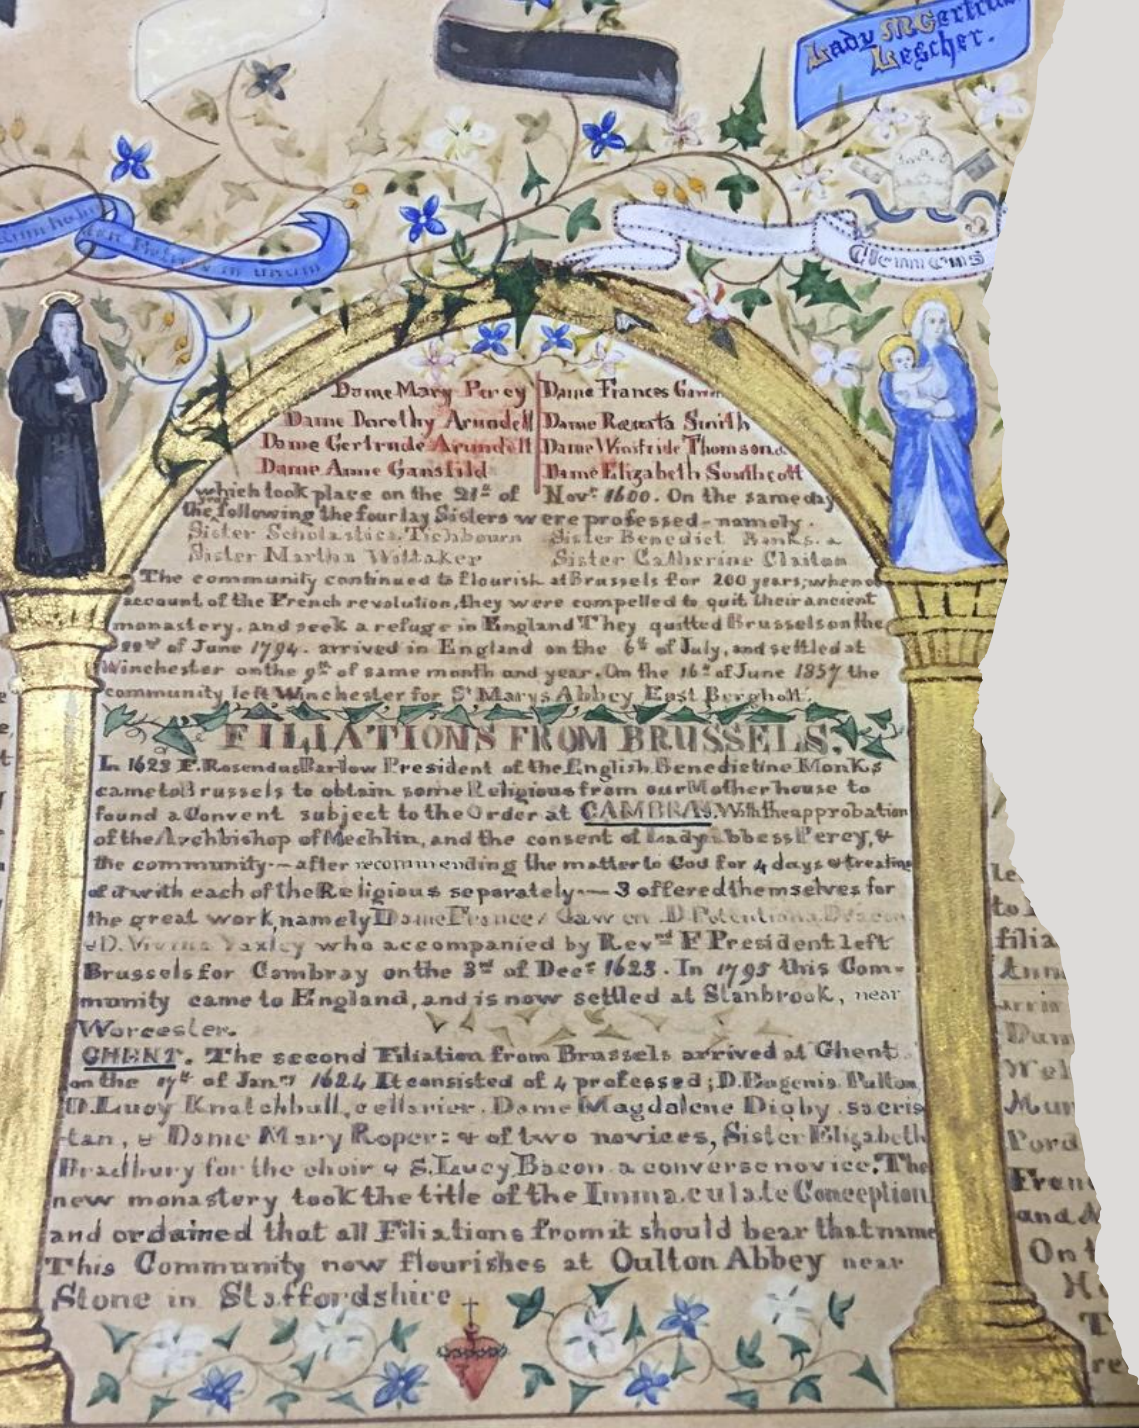 Lady M Gertrude
Lescher.
Clemens
Dame Mary Percy Dame Frances
Dame Dorothy Arundell Dame Renata Smith
Dame Gertrude Arundell Dame Winifride Thomson
Dame Anne Gansfild Dame Elizabeth Southcott
which took place on the 21st of Novr 1600. On the same day
the following the four lay Sisters were professed-namely.
Sister Scholastica. Tichbourn Sister Benedict Banks.
Sister Martha Wittaker Sister Catherine Claiton
The community continued to flourish at Brussels for 200 years; when on
account of the French revolution, they were compelled to quit their ancient
monastery, and seek a refuge in England They quitted Brussels on the
22nd of June 1794. arrived in England on the 6th of July, and settled at
Winchester on the 9th of same month and year. On the 16th of June 1857 the
community left Winchester for St Marys Abbey East Bergholt.
FILIATIONS FROM BRUSSELS.
In 1623 F. Rosendus Barlow President of the English Benedictine Monks
came to Brussels to obtain some Religious from our Mother house to
found a Convent subject to the Order at CAMBRAY. With the approbation
of the Archbishop of Mechlin, and the consent of Lady Abbess Percy, &
the community-- after recommending the matter to God for 4 days & treating
of it with each of the Religious separately-- 3 offered themselves for
the great work, namely Dame Frances Gawen. D. Potentiana Deacon
& D. Viviana Yaxley who accompanied by Revnd F President left
Brussels for Cambray on the 3rd of Decr 1623. In 1795 this Com-
munity came to England, and is now settled at Stanbrook, near
Worcester.
GHENT. The second Filiation from Brussels arrived at Ghent
on the 17th of Jany 1624 It consisted of 4 professed; D. Eugenia
D. Lucy Knatchbull, cellarier. Dame Magdalene Digby. sacris
-tan, & Dame Mary Roper: & of two novices, Sister Elizabeth
Bradbury for the choir & S. Lucy Bacon a converse novice. The
new monastery took the title of the Immaculate Conception
and ordained that all Filiations from it should bear that name
This Community now flourishes at Oulton Abbey near
Stone in Staffordshire